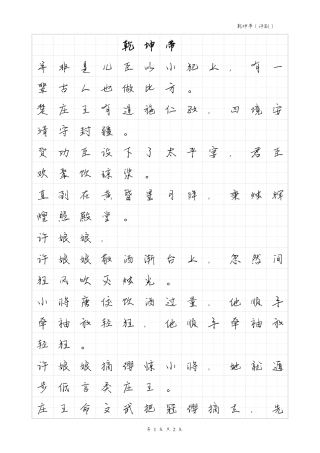 乾坤带（评剧）
乾坤带
并非是儿臣以小犯上，有一
辈古人也做比方。
楚庄王有道施仁政，四境安
靖守封疆。
贺功臣设下了太平宴，君臣
欢聚饮琼浆。
直到在黄昏星月降，乘烛辉
煌照殿堂。
许娘娘，
许娘娘敬酒渐台上，忽然间
狂风吹灭烛光。
小将唐佼饮酒过量，他顺手
牵袖敢轻狂，他顺手牵袖敢
轻狂。
许娘娘摘缨惊小将，她就通
步低言奏庄王。
庄王命文武把冠缨摘去，先
第1页共2页